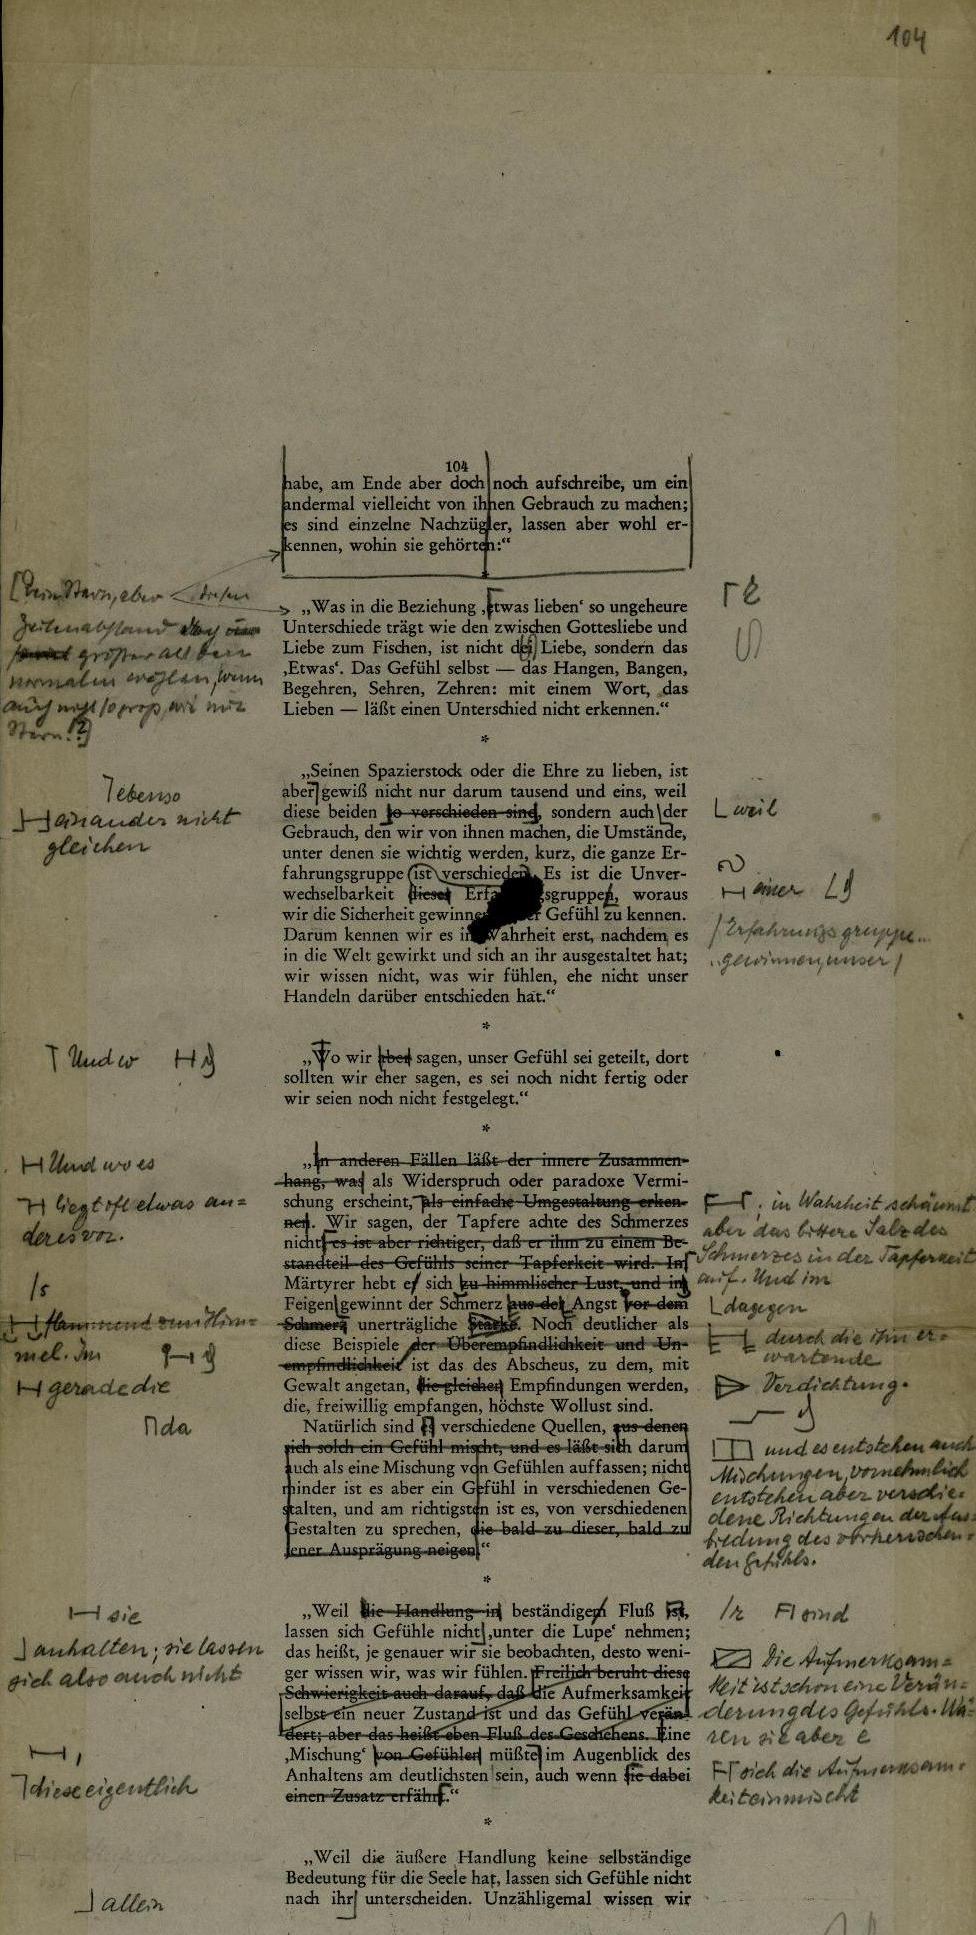 104
104
habe, am Ende aber doch noch aufschreibe, um ein
andermal vielleicht von ihnen Gebrauch zu machen;
es sind einzelne Nachzügler, lassen aber wohl er-
kennen, wohin sie gehörten:“
„Was in die Beziehung ‚etwas lieben‘ so ungeheure
Unterschiede trägt wie den zwischen Gottesliebe und
Liebe zum Fischen, ist nicht dei Liebe, sondern das
‚Etwas‘. Das Gefühl selbst — das Hangen, Bangen,
Begehren, Sehren, Zehren: mit einem Wort, das
Lieben — läßt einen Unterschied nicht erkennen.“
größer als dem
normalen
*
„Seinen Spazierstock oder die Ehre zu lieben, ist
aber gewiß nicht nur darum tausend und eins, weil
ebenso
diese beiden so verschieden sind, sondern auch der
weil
einander nicht
gleichen
Gebrauch, den wir von ihnen machen, die Umstände,
unter denen sie wichtig werden, kurz, die ganze Er-
fahrungsgruppe ist verschieden. Es ist die Unver-
wechselbarkeit dieser sgruppen, woraus
einer
wir die Sicherheit gewinne Gefühl zu kennen.
Erfahrungsgruppe...
Darum kennen wir es in Wahrheit erst, nachdem es
..gewinnen, unser
in die Welt gewirkt und sich an ihr ausgestaltet hat;
wir wissen nicht, was wir fühlen, ehe nicht unser
Handeln darüber entschieden hat.“
*
Und w
„Wo wir aber sagen, unser Gefühl sei geteilt, dort
sollten wir eher sagen, es sei noch nicht fertig oder
wir seien noch nicht festgelegt.“
*
Und wo es
„In anderen Fällen läßt der innere Zusammen-
hang, was als Widerspruch oder paradoxe Vermi-
liegt oft etwas an-
deres vor.
schung erscheint, als einfache Umgestaltung erken-
. in Wahrheit schäumt
nen. Wir sagen, der Tapfere achte des Schmerzes
aber das bittere Salz des
nicht; es ist aber richtiger, daß er ihm zu einem Be-
Schmerzes in der Tapferkeit
standteil des Gefühls seiner Tapferkeit wird. Im
auf. Und im
/s
Märtyrer hebt er sich zu himmlischer Lust, und im
Feigen gewinnt der Schmerz aus der Angst vor dem
dagegen
flammend zum Him-
mel. Im
Schmerz unerträgliche Stärke. Noch deutlicher als
durch die ihn er-
wartende
diese Beispiele der Überempfindlichkeit und Un-
empfindlichkeit ist das des Abscheus, zu dem, mit
gerade die
Gewalt angetan, die gleichen Empfindungen werden,
Verdichtung.
die, freiwillig empfangen, höchste Wollust sind.
da
Natürlich sind es verschiedene Quellen, aus denen
sich solch ein Gefühl mischt, und es läßt sich darum
und es entstehen auch
auch als eine Mischung von Gefühlen auffassen; nicht
Mischungen, vornehmlich
minder ist es aber ein Gefühl in verschiedenen Ge-
entstehen aber verschie-
stalten, und am richtigsten ist es, von verschiedenen
dene Richtungen der Aus-
Gestalten zu sprechen, die bald zu dieser, bald zu
bildung des vorherrschen-
jener Ausprägung neigen.“
den Gefühls.
*
sie
„Weil die Handlung in beständigem Fluß ist,
/r sind
anhalten; sie lassen
sich also auch nicht
lassen sich Gefühle nicht ‚unter die Lupe‘ nehmen;
das heißt, je genauer wir sie beobachten, desto weni-
Die Aufmerksam-
ger wissen wir, was wir fühlen. Freilich beruht diese
keit ist schon eine Verän-
Schwierigkeit auch darauf, daß die Aufmerksamkeit
derung des Gefühls. Wä-
selbst ein neuer Zustand ist und das Gefühl verän-
ren sie aber e
dert; aber das heißt eben Fluß des Geschehens. Eine
‚Mischung‘ von Gefühlen müßte im Augenblick des
diese eigentlich
Anhaltens am deutlichsten sein, auch wenn sie dabei
sich die Aufmerksam-
keit einmischt
einen Zusatz erfährt.“
*
„Weil die äußere Handlung keine selbständige
Bedeutung für die Seele hat, lassen sich Gefühle nicht
nach ihr unterscheiden. Unzähligemal wissen wir
allein